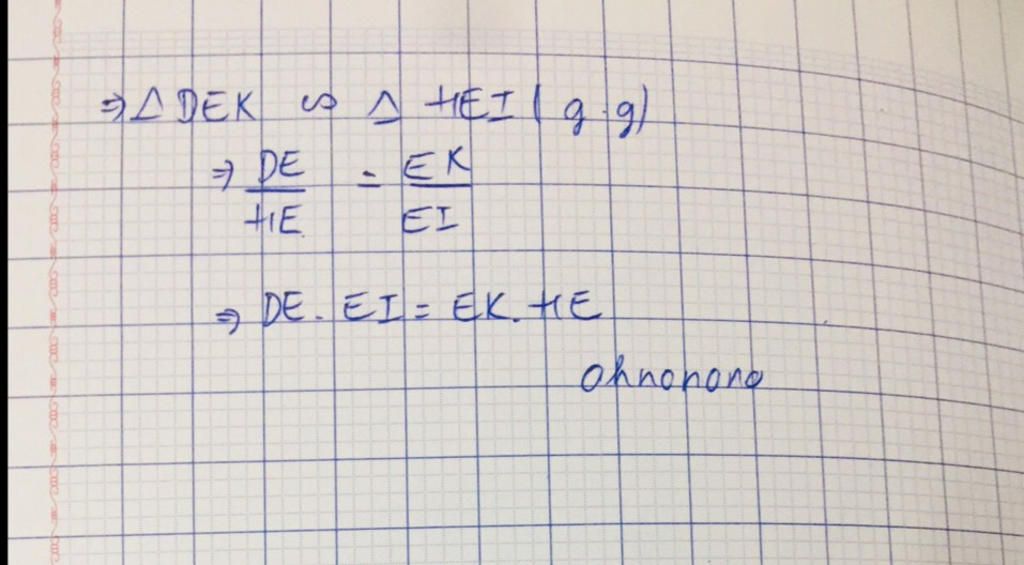 ⇒ Δ DEK ∽ Δ HEI ( g.g)
⇒ DE/HE = EK/EI
⇒ DE. EI = EK. HE
Ohnonono